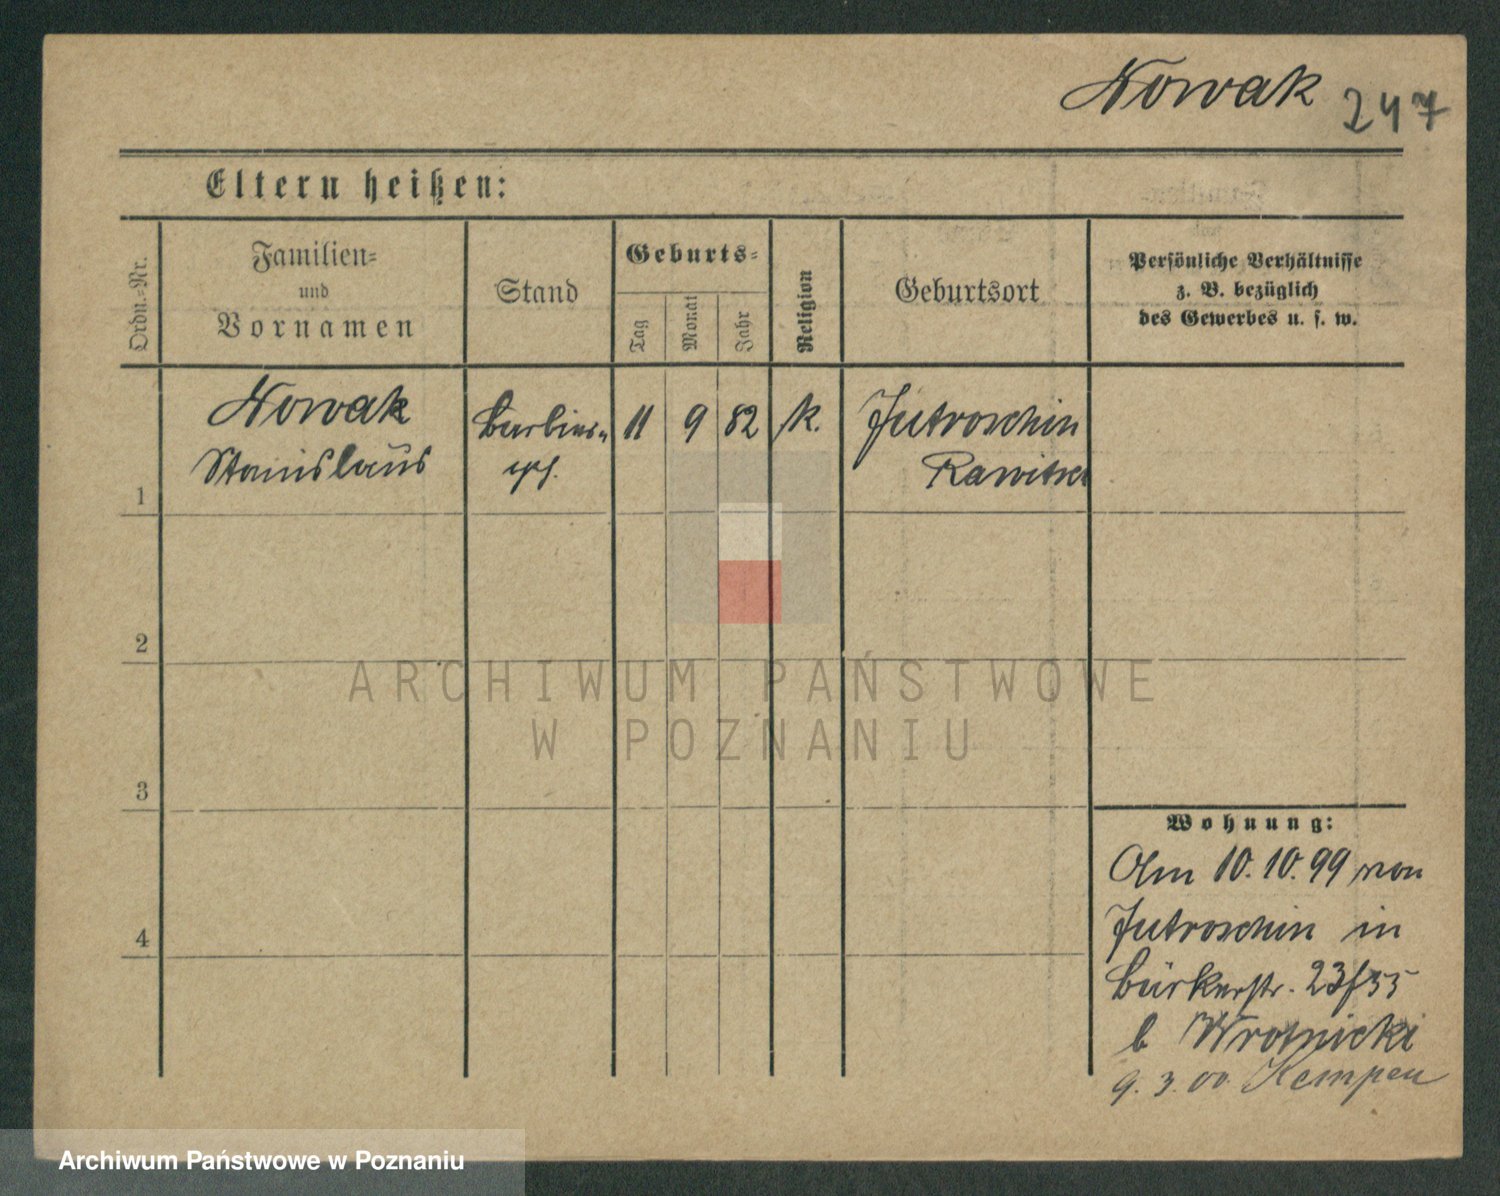 Nowak 247
Eltern heißen:
Ordn.-Nr.
Familien-
und
Vornamen
Stand
Geburts-
Tag
Monat
Jahr
Religion
Geburtsort
Persönliche Verhältnisse
z. B. bezüglich
des Gewerbes u. s. w.
Nowak
Stanislaus
Barbier-
11 9 82 k.
Jutroschin
Rawitsch
1
2
3
4
ARCHIWUM PAŃSTWOWE
W POZNANIU
Wohnung:
Am 10.10.99 von
Jutroschin in
23/35
b Wrotnicki
9.3.00. Kempen
Archiwum Państwowe w Poznaniu